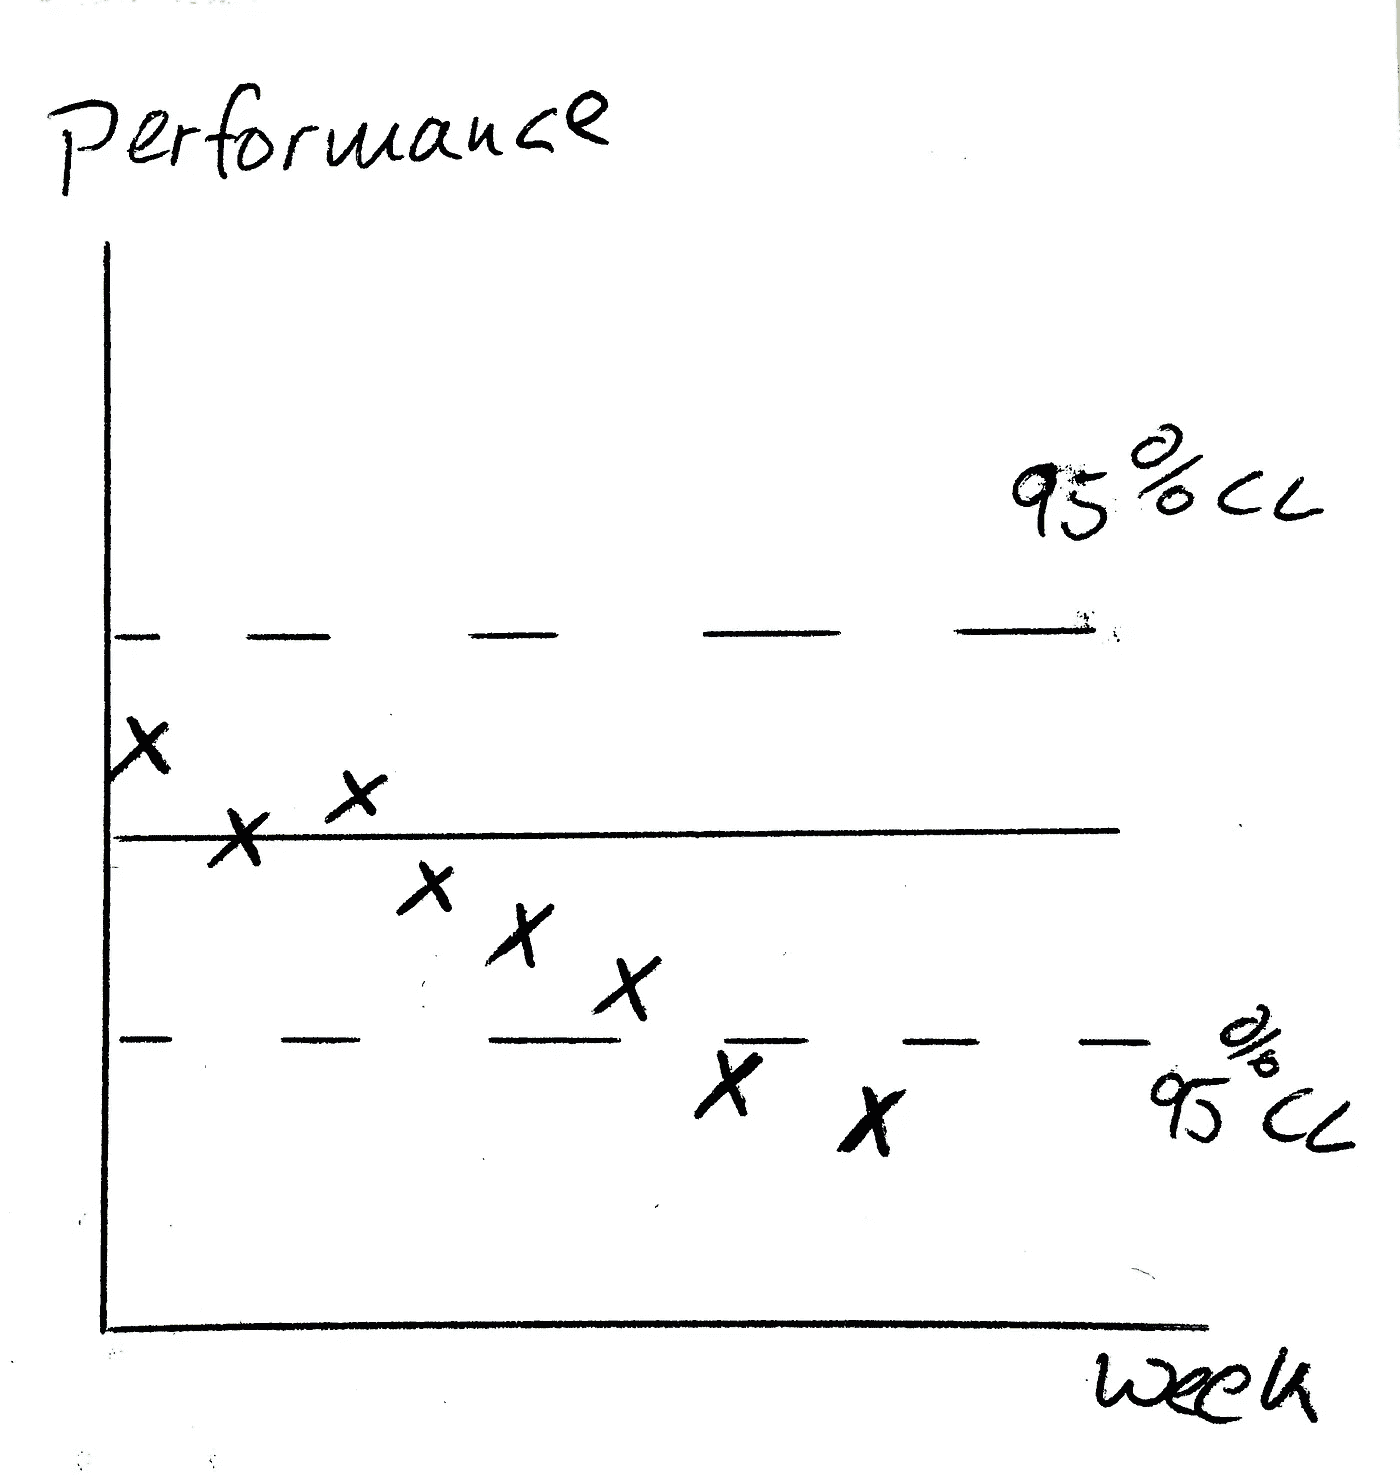 Performance
95% CL
95% CL
Week